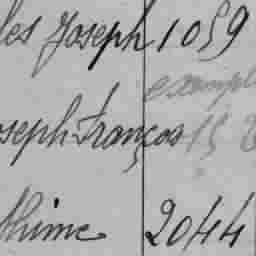 les Joseph 1059
exempl
oseph Françoas 15
thime 2044